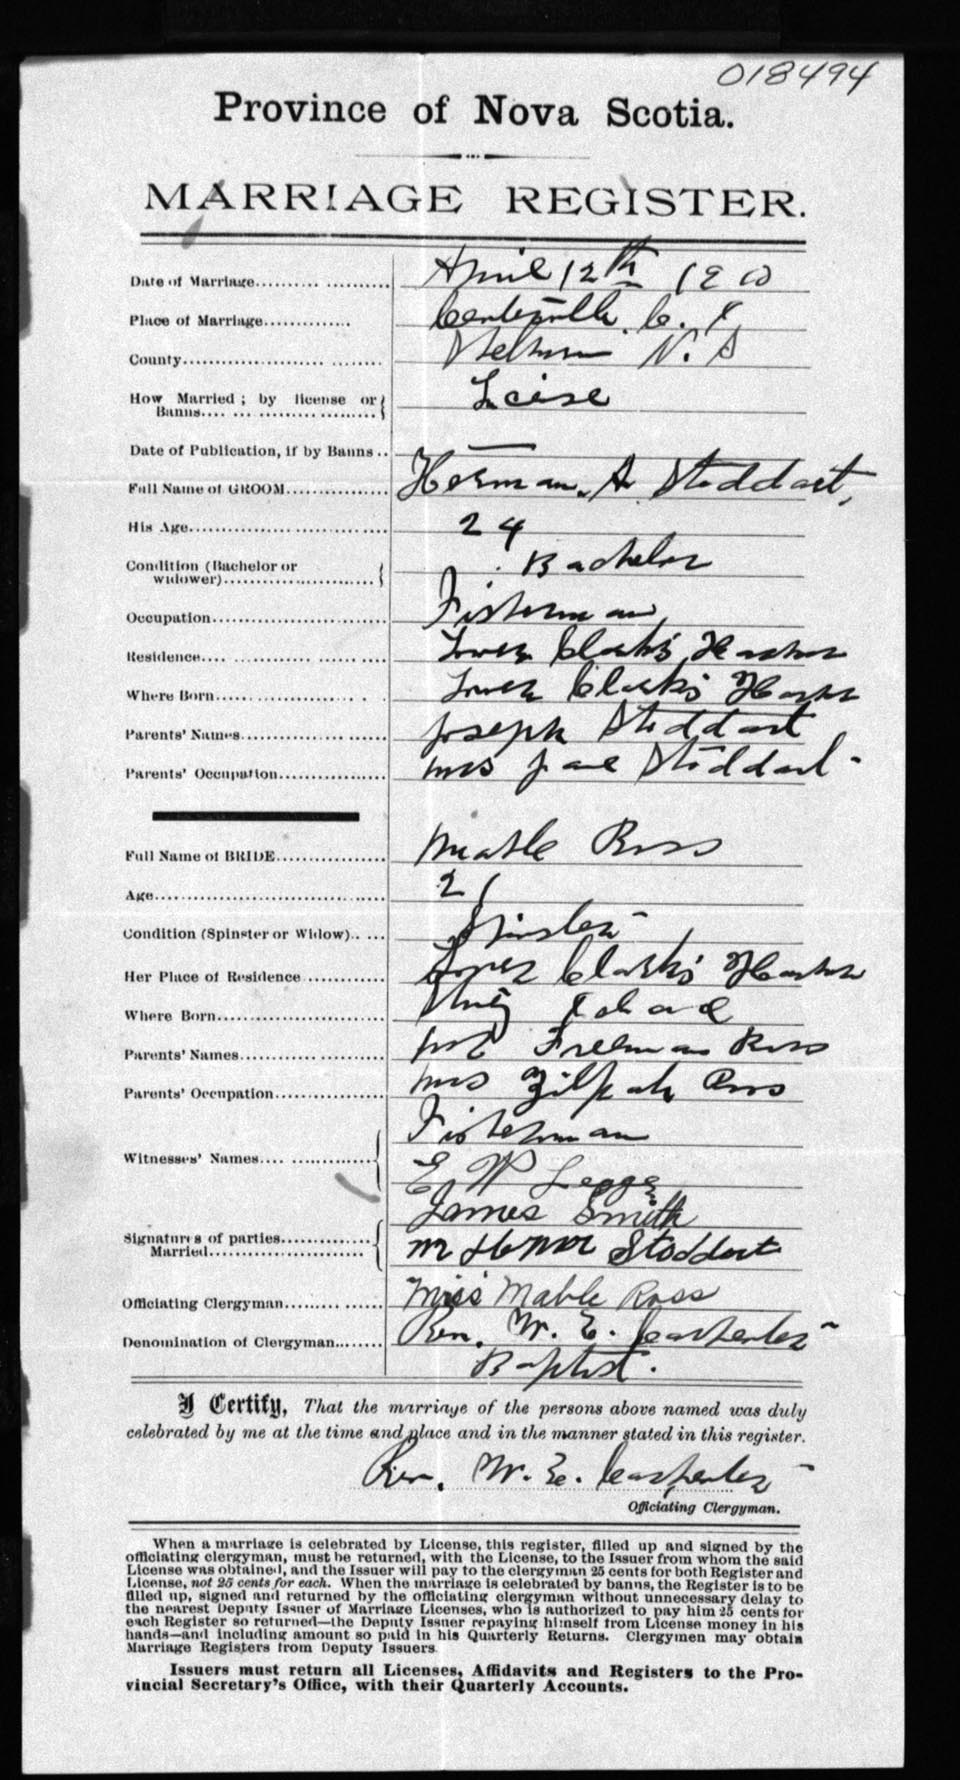 018494
Province of Nova Scotia.
MARRIAGE REGISTER.
Date of Marriage.......... ........... April 12th
Place of Marriage.............. C.
County.................... ......... N. S
How Married ; by license or Licise
Banns.... ... ..................
Date of Publication, if by Banns .. —
Full Name of GROOM................ Herman A Stoddart,
His Age............................... 24
Condition (Bachelor or Bachelor
widower)........................
Occupation........................... Fisherman
Residence.... ............ ....... ..... Lower Clark's Harbor
Where Born...... ............. . . Lower Clark's Harbor
Parents' Names................ ......... Joseph Stoddart
Parents' Occupation................ Mrs Jane Stoddart
Full Name of BRIDE................. Mable Ross
Age................................... 21
Condition (Spinster or Widow).. .... Spinster
Her Place of Residence............. Lower Clark's Harbor
Where Born.......................... Island
Parents' Names.......... ............ Freeman Ross
Parents' Occupation................. Mrs Zilpah Ross
Fisherman
Witnesses' Names.... ............... E W Legge
James Smith
Signatures of parties............. Stoddart
Married.........................
Officiating Clergyman......... ...... Miss Mable Ross
Denomination of Clergyman......... Rev. W. E. Carpenter
Baptist.
I Certify, That the marriage of the persons above named was duly
celebrated by me at the time and place and in the manner stated in this register.
Rev. W. E. Carpenter
Officiating Clergyman.
When a marriage is celebrated by License, this register, filled up and signed by the
officiating clergyman, must be returned, with the License, to the Issuer from whom the said
License was obtained, and the Issuer will pay to the clergyman 25 cents for both Register and
License, not 25 cents for each. When the marriage is celebrated by banns, the Register is to be
filled up, signed and returned by the officiating clergyman without unnecessary delay to
the nearest Deputy Issuer of Marriage Licenses, who is authorized to pay him 25 cents for
each Register so returned—the Deputy Issuer repaying himself from License money in his
hands—and including amount so paid in his Quarterly Returns. Clergymen may obtain
Marriage Registers from Deputy Issuers.
Issuers must return all Licenses, Affidavits and Registers to the Pro-
vincial Secretary's Office, with their Quarterly Accounts.